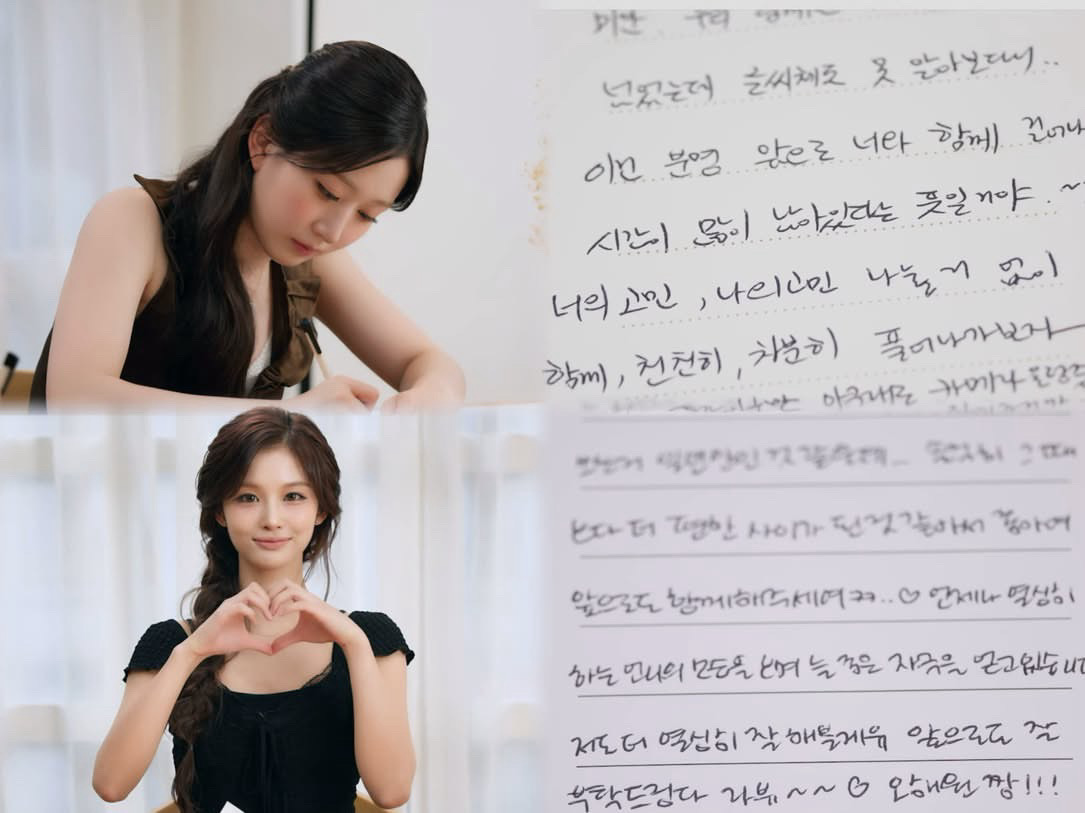 넌 왔는데 글씨체도 못 알아보다니..
이건 분명 앞으로 너랑 함께 걸어나
시간이 많이 남아있다는 뜻일거야.~
너의 고민, 나의 고민 나눌 거 없이
함께, 천천히, 차분히 풀어나가보자
보다 더 편한 사이가 된 것 같아서 좋아여
앞으로도 함께해주세여ㅋㅋ..♡ 언제나 열심히
하는 언니의 모습을 보며 늘 좋은 자극을 얻고있습니다
저도 더 열심히 잘 해볼게유 앞으로도 잘
부탁드립다 라뷰~~♡ 오해원 짱!!!